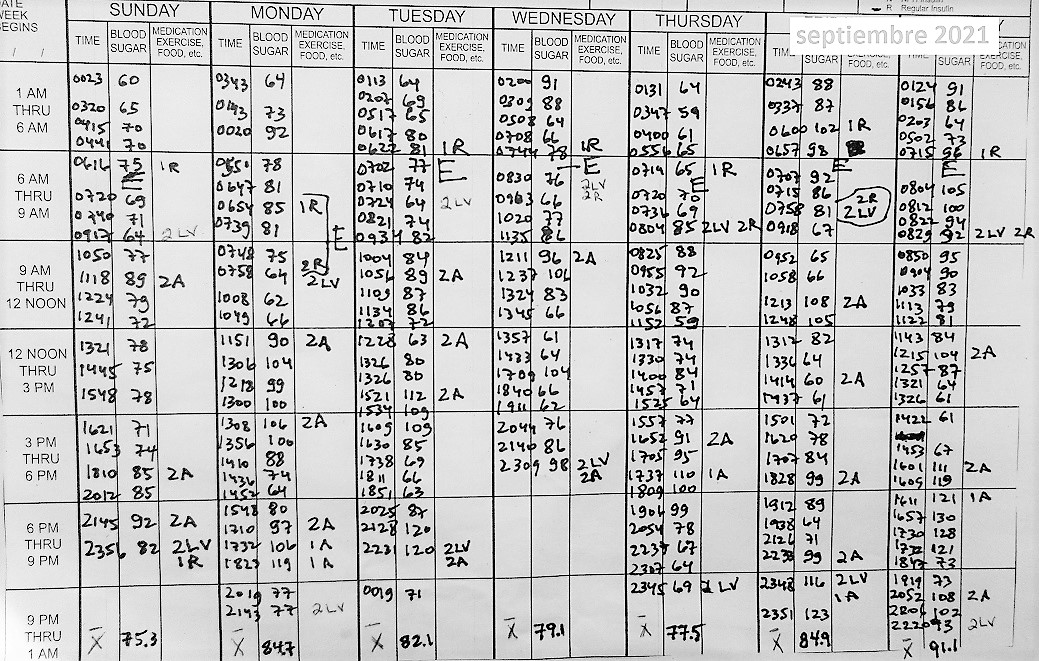 DATE
WEEK
BEGINS
/ /
R Regular Insulin
septiembre 2021
SUNDAY MONDAY TUESDAY WEDNESDAY THURSDAY
TIME BLOOD SUGAR MEDICATION EXERCISE, FOOD, etc. TIME BLOOD SUGAR MEDICATION EXERCISE, FOOD, etc. TIME BLOOD SUGAR MEDICATION EXERCISE, FOOD, etc. TIME BLOOD SUGAR MEDICATION EXERCISE, FOOD, etc. TIME BLOOD SUGAR MEDICATION EXERCISE, FOOD, etc.
1 AM THRU 6 AM
0023 60
0320 65
0415 70
0441 70
0343 64
0143 73
0020 92
0113 64
0207 69
0517 65
0617 80
0622 81 1R
0200 91
0309 88
0508 64
0708 66
0744 78 1R
0131 64
0347 59
0400 61
0556 65
0243 88
0337 87
0600 102 1R
0657 98
0124 91
0156 86
0203 64
0502 73
0715 96 1R
6 AM THRU 9 AM
0616 75 1R
E
0720 69
0740 71
0917 64 2LV
0551 78
0647 81
0654 85 1R
0739 81
E
0702 77 E
0710 74
0724 64 2LV
0821 74
0934 82
E
0830 76 2LV
0903 66 2R
1020 77
1135 86
0714 65 1R
E
0720 70
0736 69
0804 85 2LV 2R
E
0707 92
0715 86 2R
0758 81 2LV
0918 67
E
0804 105
0812 100
0822 94
0829 92 2LV 2R
9 AM THRU 12 NOON
1050 77
1118 89 2A
1224 79
1241 72
0748 75 2R
0758 64 2LV
1008 62
1049 66
1004 84
1056 89 2A
1109 87
1134 86
1207 72
1211 96 2A
1237 106
1324 83
1345 66
0825 88
0955 92
1032 90
1056 87
1152 59
0952 65
1058 66
1213 108 2A
1248 105
0850 95
0904 90
1033 83
1113 79
1122 81
12 NOON THRU 3 PM
1321 78
1445 75
1548 78
1151 90 2A
1306 104
1218 99
1300 100
1228 63 2A
1326 80
1326 80
1521 112 2A
1534 109
1357 61
1433 64
1709 104
1840 66
1911 62
1317 74
1330 74
1400 84
1457 71
1525 64
1312 82
1336 64
1414 60 2A
1437 61
1143 84
1215 104 2A
1257 87
1321 64
1326 61
3 PM THRU 6 PM
1621 71
1653 74
1810 85 2A
2012 85
1308 106 2A
1356 100
1410 88
1436 74
1452 64
1609 109
1630 85
1738 69
1811 66
1851 63
2044 76
2140 86
2309 98 2LV
2A
1557 77
1652 91 2A
1705 95
1737 110 1A
1809 100
1501 72
1620 78
1707 84
1828 99 2A
1422 61
1453 67
1601 111 2A
1605 119
6 PM THRU 9 PM
2145 92 2A
2356 82 2LV
1R
1548 80
1710 97 2A
1732 106 1A
1823 119 1A
2025 87
2128 120
2231 120 2LV
2A
1906 99
2054 78
2237 67
2307 64
1912 89
1938 64
2126 71
2238 99 2A
1611 121 1A
1657 130
1730 128
1732 121
1847 73
9 PM THRU 1 AM
2019 77
2143 77 2LV
0019 71
2345 69 2LV
2348 116 2LV
1A
2351 123
1919 73
2052 108 2A
2206 102
2220 93 2LV
X̄ 75.3
X̄ 84.7
X̄ 82.1
X̄ 79.1
X̄ 77.5
X̄ 84.9
X̄ 91.1